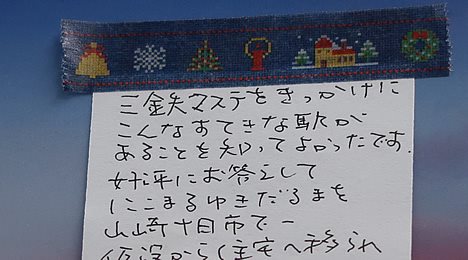 三鉄マステをきっかけに
こんなすてきな駅が
あることを知ってよかったです.
好評にお答えして
にこまるゆきだるまを
山崎十日市で一
仮設から住宅へ移られ